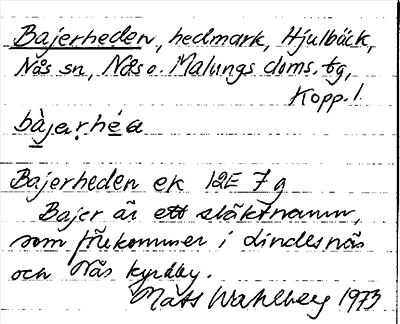 Bajerheden, hedmark, Hjulbäck,
Nås sn, Nås o. Malungs doms. tg,
Kopp. l.
bàjaṛhéa
Bajerheden ek 12E 7g
Bajer är ett släktnamn,
som förekommer i Lindesnäs
och Nås kyrkby.
Mats Wahlberg 1973